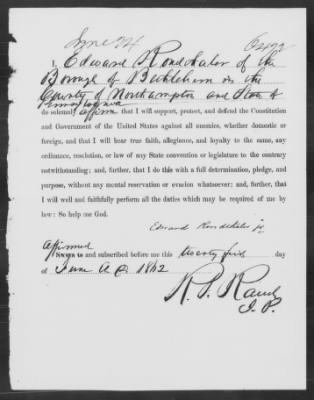 June 24
I, Edward Rondthaler of the
Borough of Bethlehem in the
County of Northampton and State of
Pennsylvania
do solemnly affirm that I will support, protect, and defend the Constitution
and Government of the United States against all enemies, whether domestic or
foreign, and that I will bear true faith, allegiance, and loyalty to the same, any
ordinance, resolution, or law of any State convention or legislature to the contrary
notwithstanding; and, further, that I do this with a full determination, pledge, and
purpose, without any mental reservation or evasion whatsoever; and, further, that
I will well and faithfully perform all the duties which may be required of me by
law: So help me God.
Edward Rondthaler jr.
Affirmed
Sworn to and subscribed before me this twenty first day
of June A.D. 1862
R. P. Rauch
J. P.